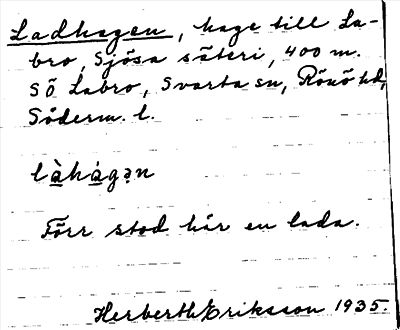 Ladhagen, hage till La-
bro, Sjösa säteri, 400 m.
SÖ Labro, Svarta sn, Rönö hd,
Söderm. l.
làhȧgən
Förr stod här en lada.
Herberth Eriksson 1935.